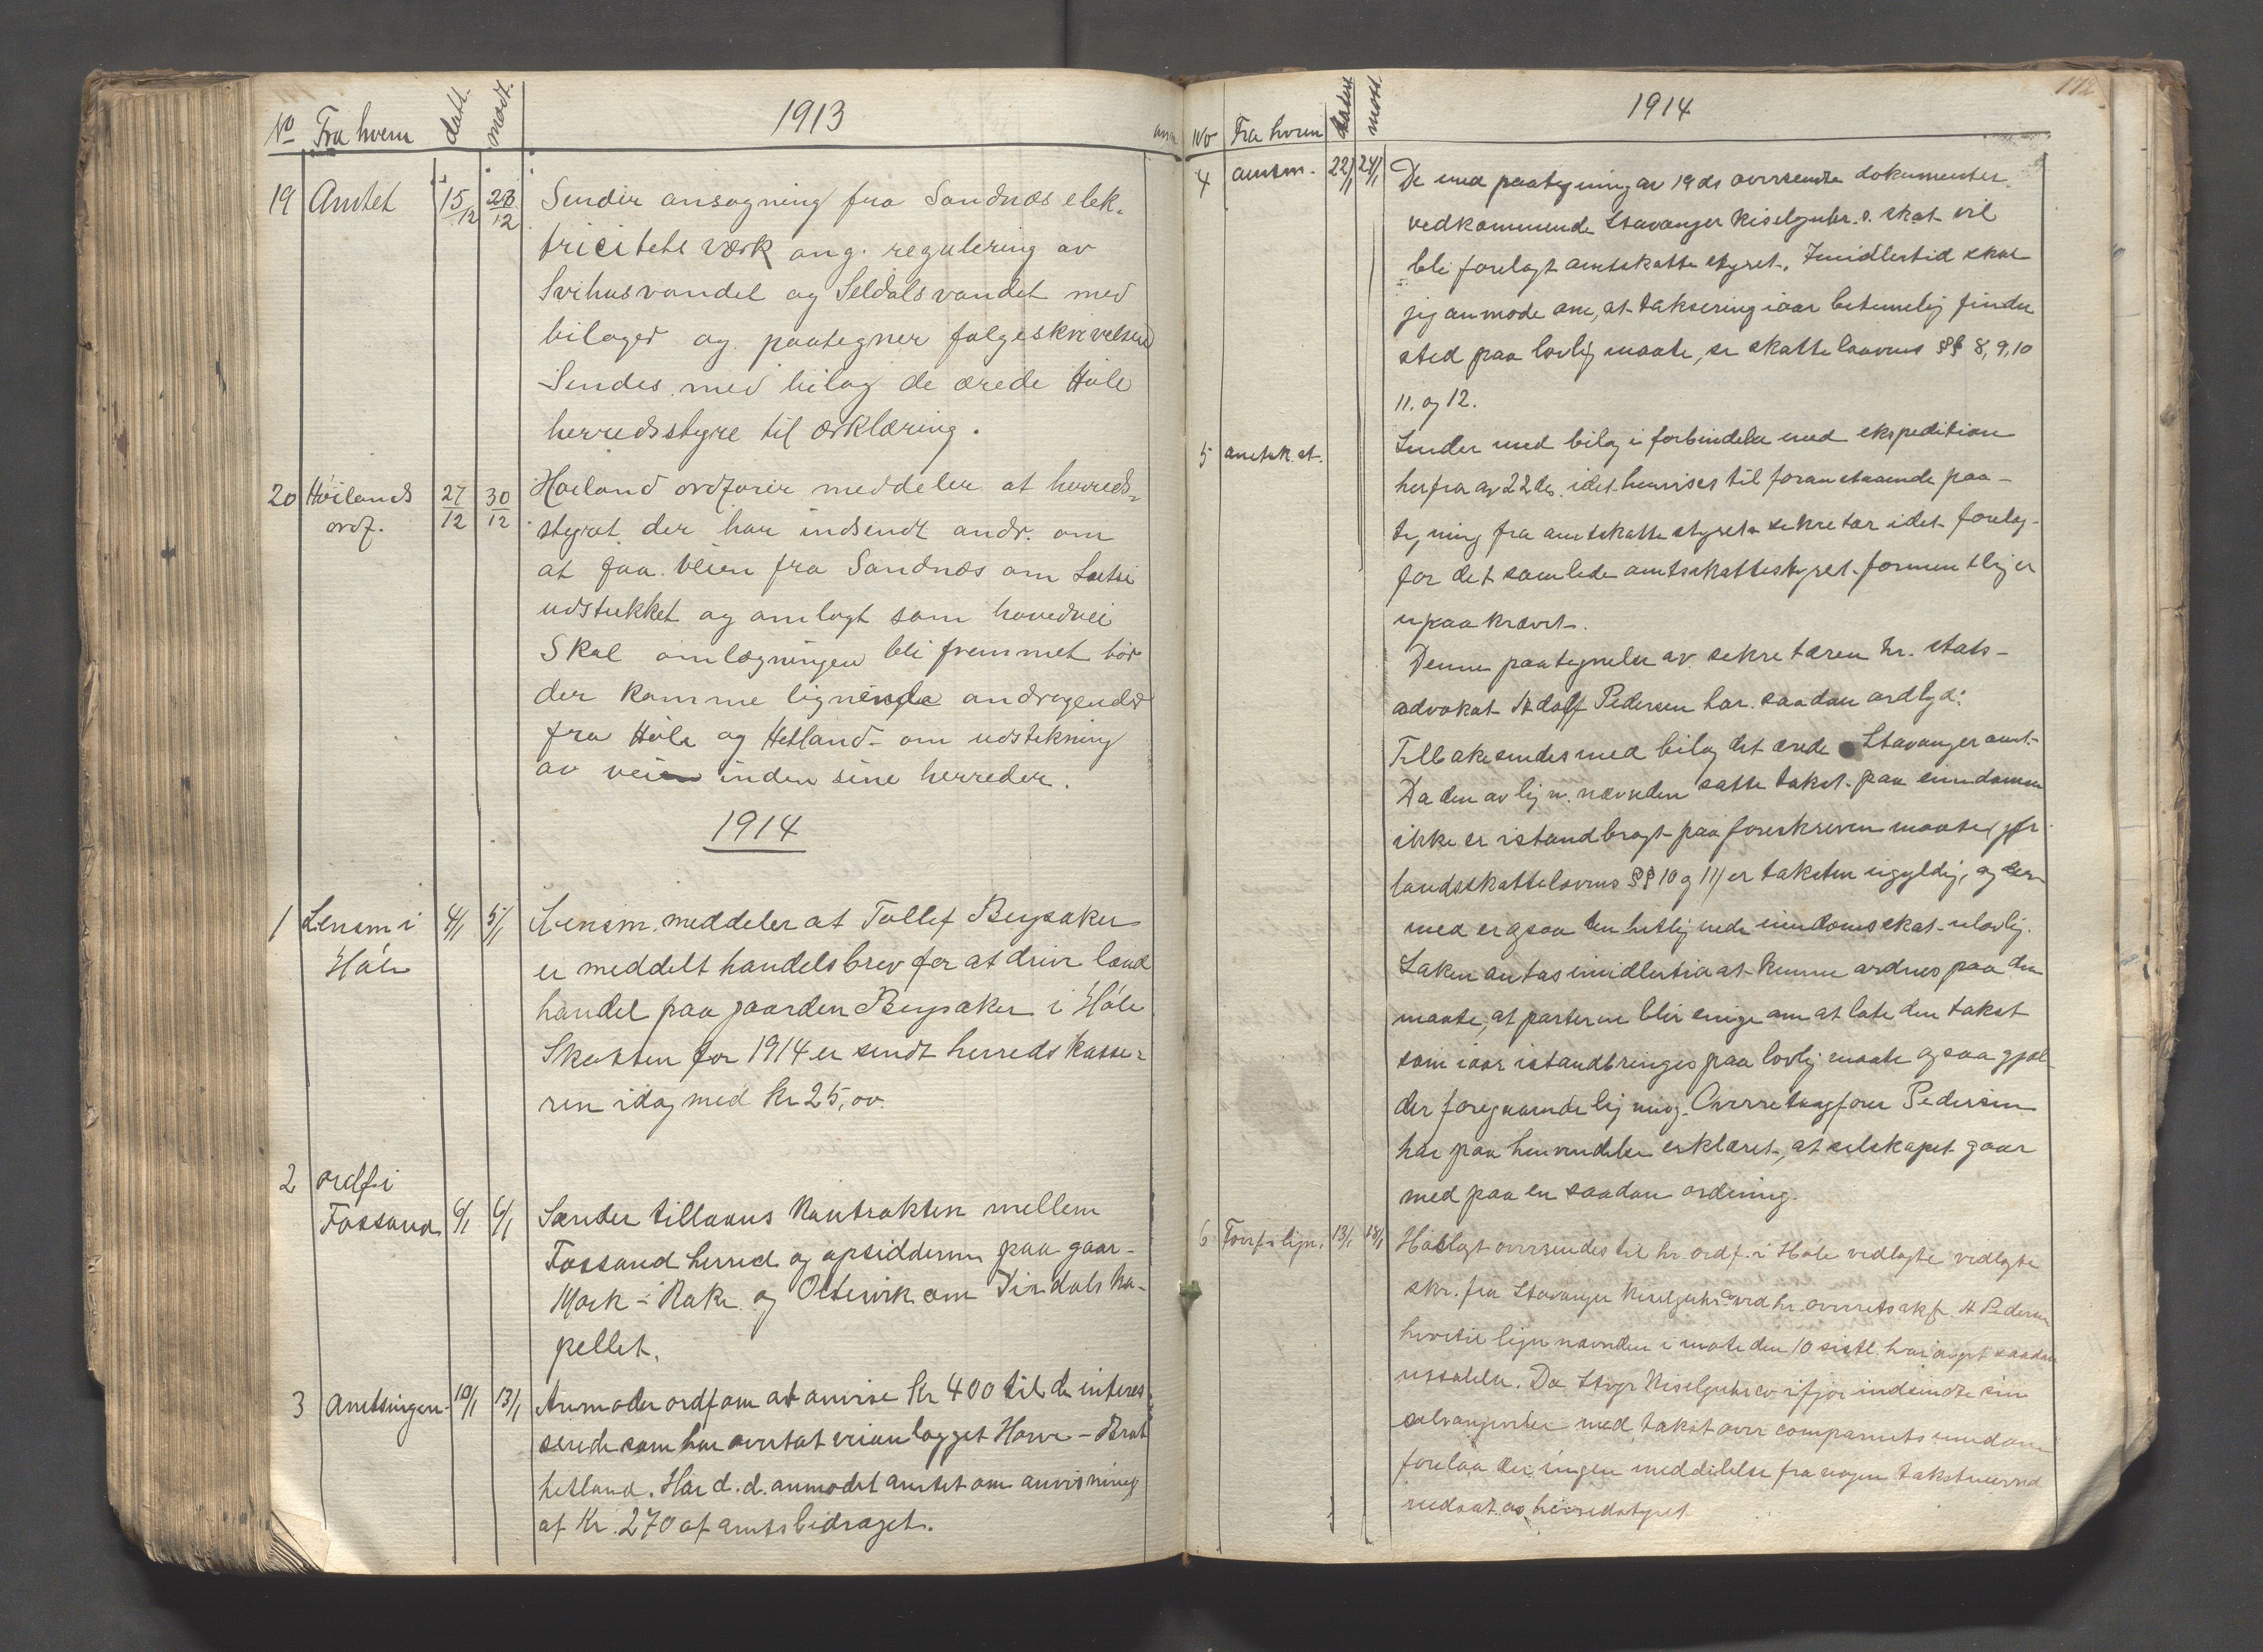 No Fra hvem datt. modt. 1913
19 Amtet 15/12 23/12 Sender ansøgning fra Sandnæs elek-
tricitets værk ang. regulering av
Svihusvandet og Seldalsvandet med
bilager og paategner følgeskrivelsen
Sendes med bilag de ærede Høle
herredsstyre til ærklæring.
20 Höilands 27/12 30/12 Høiland ordfører meddeler at herreds-
ordf. styret der har indsendt andr. om
at faa veien fra Sandnæs om
udstukket og omlagt som hovedvei
Skal omlægningen bli fremmet bör
der komme lignende andragender
fra Höle og Hetland om udstekning
av veien inden sine herreder.
1914
1 Lensm i 4/1 5/1 Lensm. meddeler at Tollef Bersaker
Høle er meddelt handelsbrev for at drive land
handel paa gaarden Bersaker i Høle
Skatten for 1914 er sendt herredskasse-
ren idag med Kr 25,00.
2 ordf. i
Fossand 6/1 6/1 Sender tillaans Kontrakten mellem
Fossand herred og opsidderne paa gaar-
Mork - Rake og Oltervik om Dirdals ka-
pellet.
3 Amtsingen. 10/1 13/1 Anmoder ordf om at anvise Kr 400 til de interes-
serede som har overtat veianlægget Hove - Brat
hetland. Har d. d. anmodet amtet om anvisning
af Kr. 270 af amtsbidraget.
172
No Fra hvem datert mott. 1914
4 amtm. 22/1 24/1 De med paategning av 19 ds oversendte dokumenter
vedkommende Stavanger Kiselguhr. s. skat vil
bli forelagt amtskattestyret. Imidlertid skal
jeg anmode om, at taksering iaar betimelig finder
sted paa lovlig maate, se skattelovens §§ 8, 9, 10
11. og 12.
5 amtsk. st. Sender med bilag i forbindelse med ekspedition
herfra av 22 ds. idet henvises til foranstaaende paa-
tegning fra amtskattestyrets sekretær idet forelæg-
for det samlede amtsskattestyret formentlig er
upaakrævet.
Denne paategnelse av sekretæren hr. stats-
advokat Adolf Pedersen har saadan ordlyd:
Tilbakesendes med bilag det ærede Stavanger amt.
Da den av lign. nævnden satte takst paa eiendommen
ikke er istandbragt paa foreskreven maate (jfr.
landsskattelovens §§ 10 og 11) er taksten ugyldig, og der
med er ogsaa den utlignede eiendomsskat ulovlig.
Saken antas imidlertid at kunne ordnes paa den
maate, at parterne blir enige om at late den takst
som iaar istandbringes paa lovlig maate ogsaa gjæl-
der foregaaende ligning. Overretssagfører Pedersen
har paa henvendelse erklæret, at selskapet gaar
med paa en saadan ordning.
6 Forf. lign. 13/1 13/1 Høilagt oversendes til hr. ordf. i Høle vedlagte vedlagte
skr. fra Stavanger Kiselguhr co ved hr. overretssakf. A Pedersen
hvortil lign nævnden i møte den 10 sistl. har avgit saadan
uttalelse. Da Stvgr Kiselguhr co ifjor indsendte sin
selvangivelse med takst over compagniets eiendom
forelaa der ingen meddelelse fra nogen takstnevnd
nedsat av herredstyret